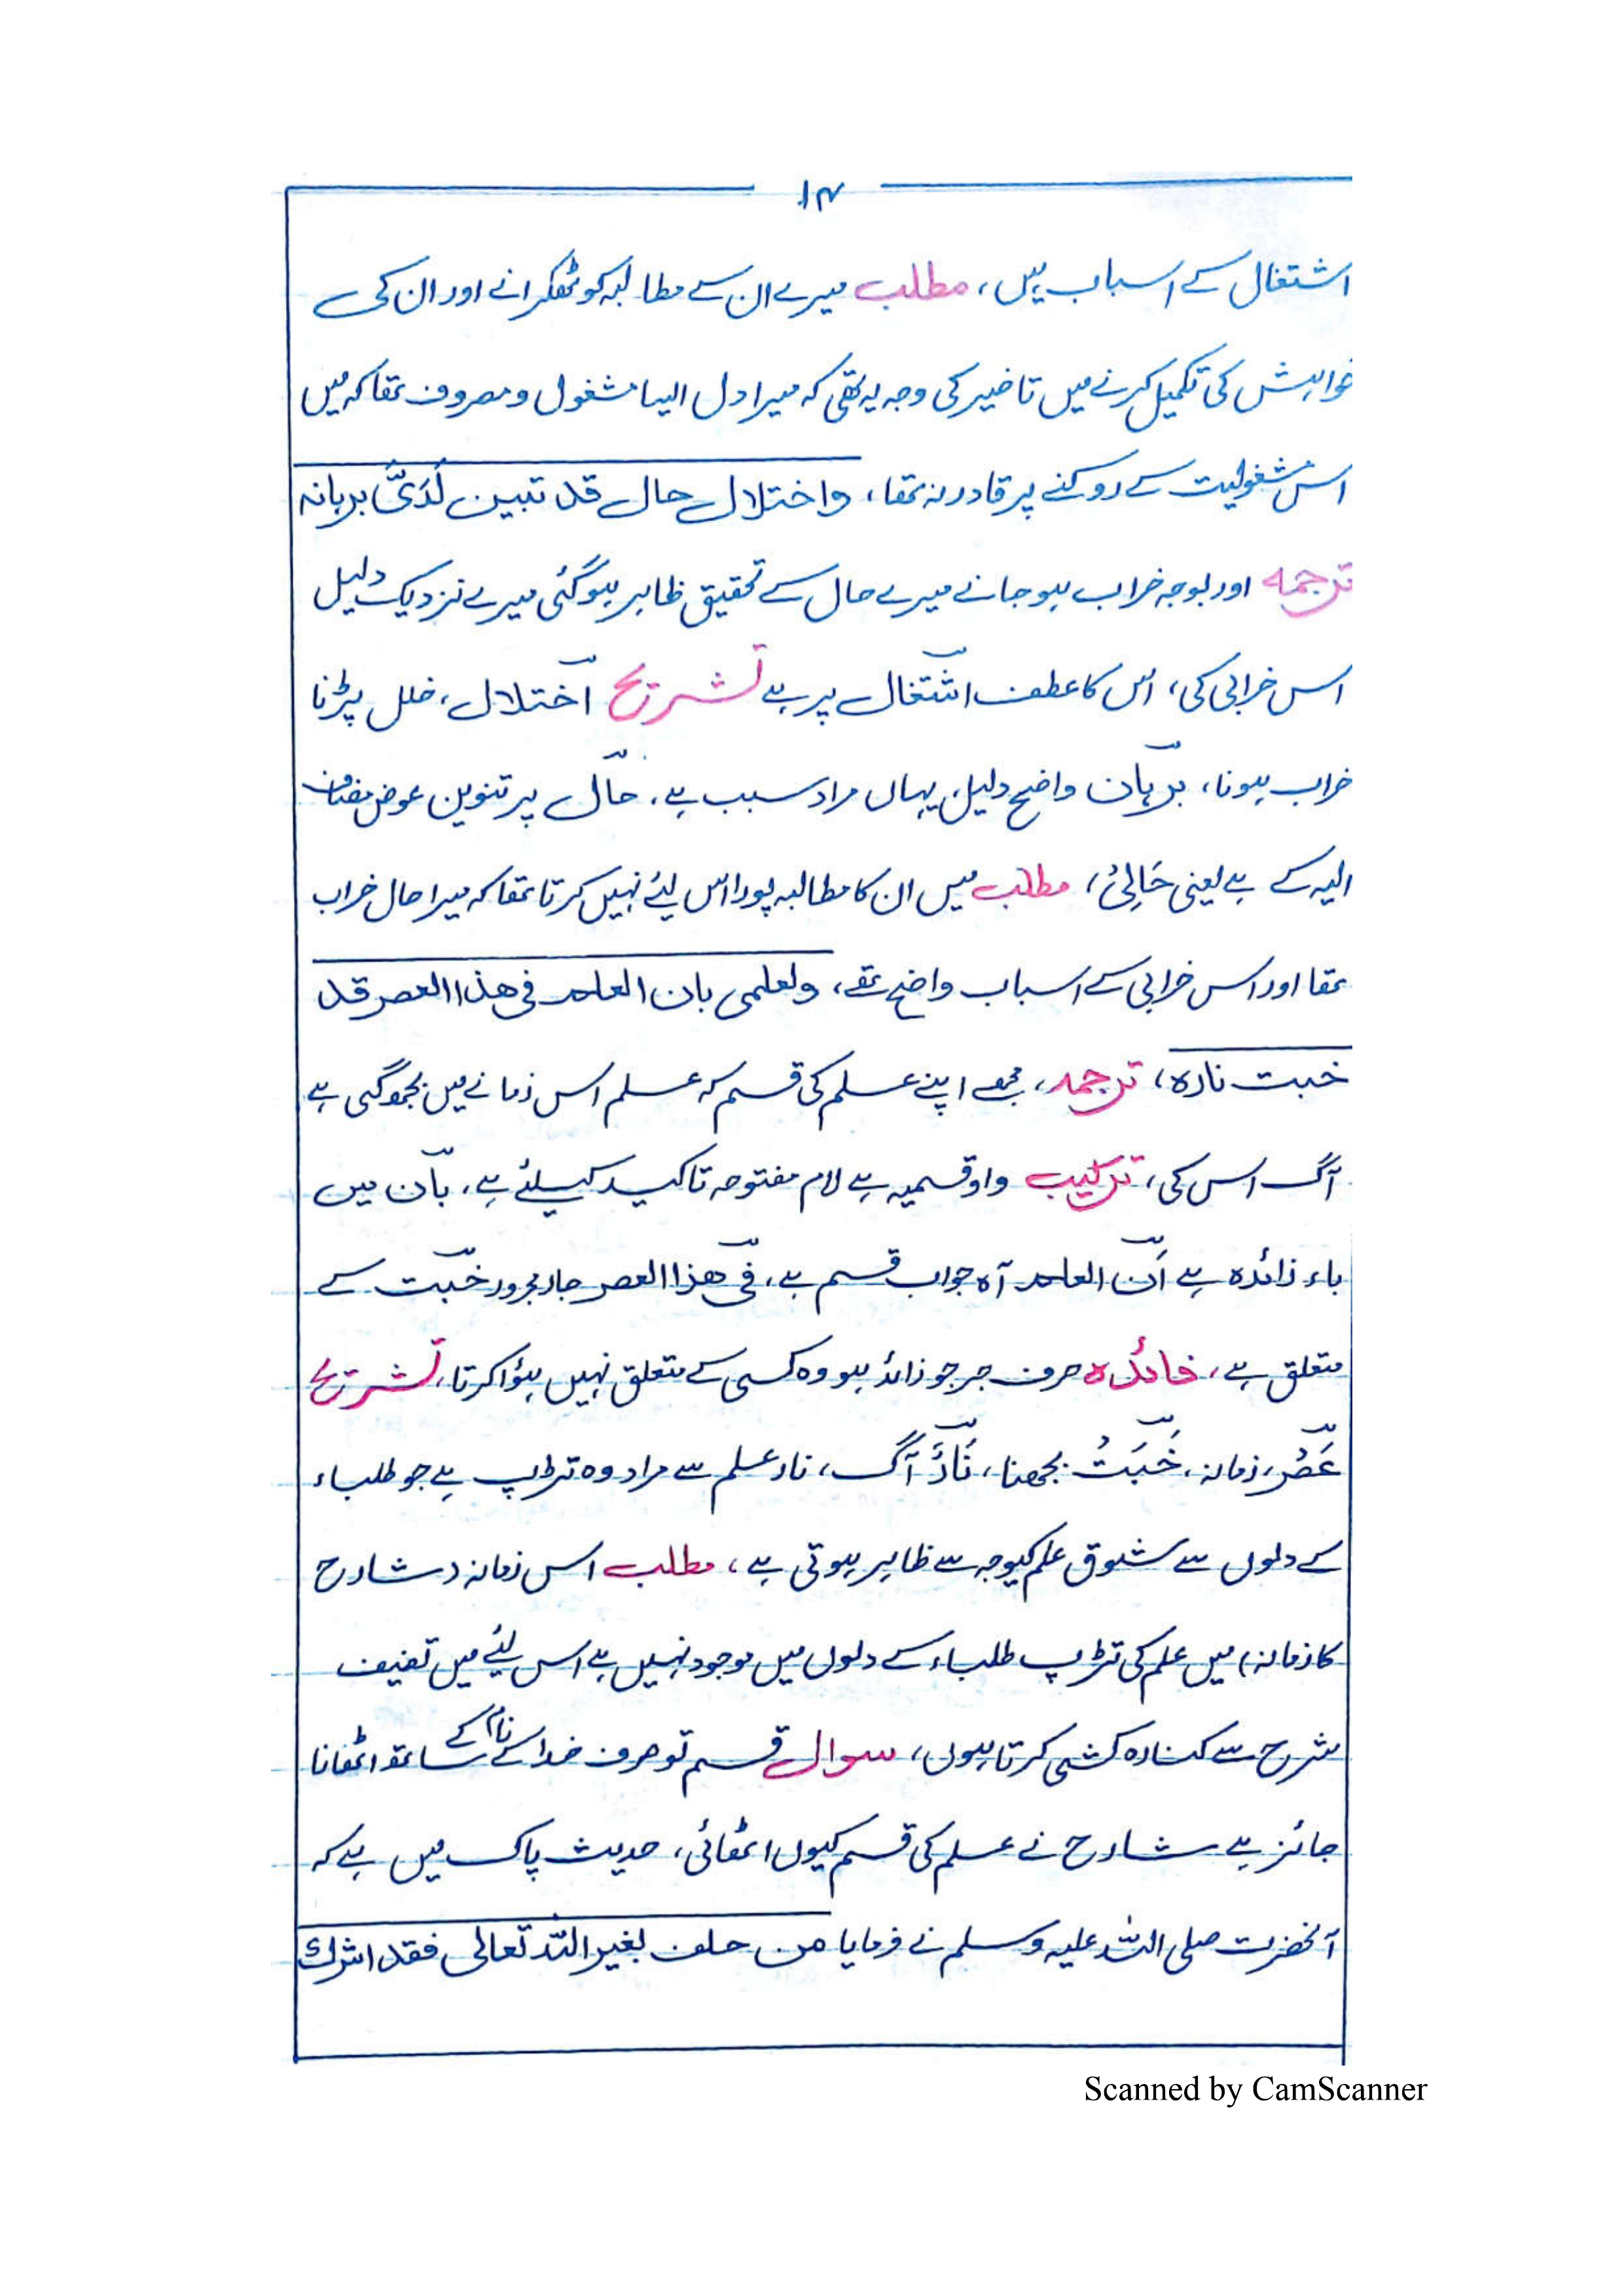 ۱۴
اشتغال کے اسباب ہیں، مطلب میرے ان سے مطالبہ کو ٹھکرانے اور ان کی
خواہش کی تکمیل کرنے میں تاخیر کی وجہ یہ تھی کہ میرا دل ایسا مشغول و مصروف تھا کہ میں
اس مشغولیت سے روکنے پر قادر نہ تھا، واختلال حال قد تبین لَدَیَّ برہانہ
ترجمہ اور بوجہ خراب ہو جانے میرے حال کے تحقیق ظاہر ہوگئی میرے نزدیک دلیل
اس خرابی کی، اس کا عطف اشتغال پر ہے تشریح اختلال، خلل پڑنا
خراب ہونا، برہان واضح دلیل، یہاں مراد سبب ہے، حال پر تنوین عوض مضاف
الیہ کے ہے یعنی حَالِیْ، مطلب میں ان کا مطالبہ پورا اس لیئے نہیں کرتا تھا کہ میرا حال خراب
تھا اور اس خرابی کے اسباب واضح تھے، ولعلمی بان العلم فی ھذا العصر قد
خبت نارہ، ترجمہ، مجھے اپنے علم کی قسم کہ علم اس زمانے میں بجھ گئی ہے
آگ اس کی، ترکیب واو قسمیہ ہے لام مفتوحہ تاکید کیلئے ہے، بان میں
باء زائدہ ہے اَن العلم آہ جواب قسم ہے، فی ھذا العصر جار مجرور خبت کے
متعلق ہے، فائدہ حرف جر جو زائد ہو وہ کسی کے متعلق نہیں ہؤا کرتا، تشریح
عَصْر، زمانہ، خَبَتْ بجھنا، نَارٌ آگ، نار علم سے مراد وہ تڑپ ہے جو طلباء
کے دلوں سے شوق علم کیوجہ سے ظاہر ہوتی ہے، مطلب اس زمانہ (شارح
کا زمانہ) میں علم کی تڑپ طلباء کے دلوں میں موجود نہیں ہے اس لیئے میں تصنیف
شرح سے کنارہ کشی کرتا ہوں، سوال قسم تو صرف خدا کے نام کے ساتھ اٹھانا
جائز ہے شارح نے علم کی قسم کیوں اٹھائی، حدیث پاک میں ہے کہ
آنحضرت صلی اللہ علیہ وسلم نے فرمایا من حلف بغیر اللہ تعالی فقد اشرک
Scanned by CamScanner